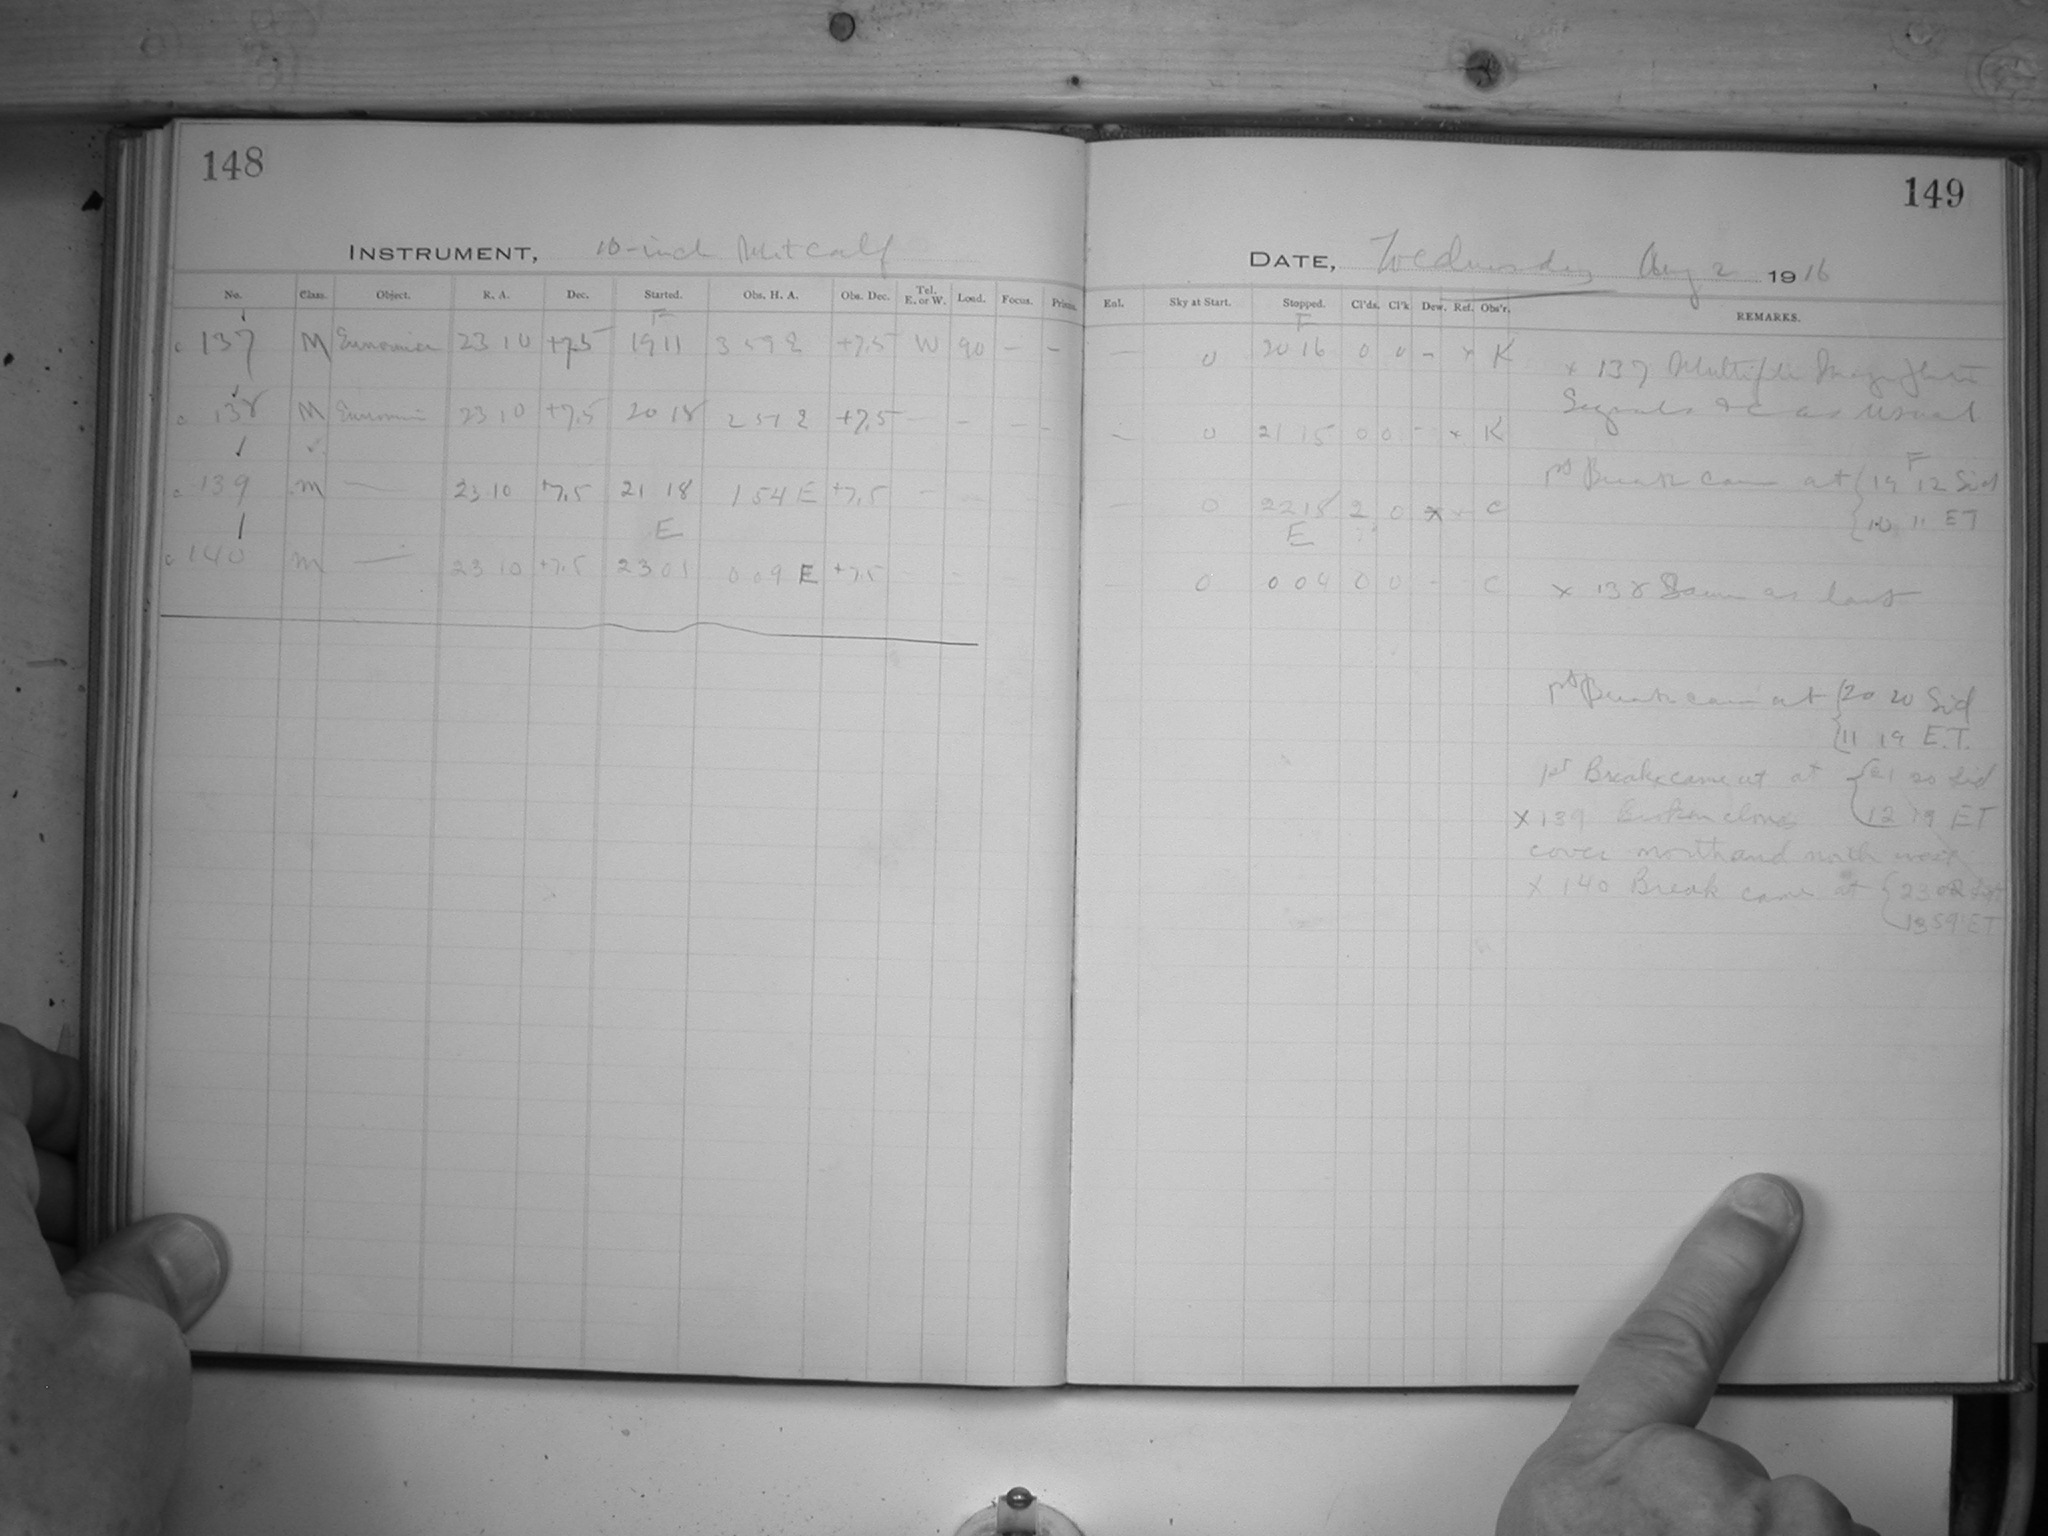 148
INSTRUMENT, 10-inch Metcalf
No. Class. Object. R. A. Dec. Started. Obs. H. A. Obs. Dec. Tel. E. or W. Load. Focus. Prisms.
F
137 M Eunomia 23 10 +7.5 19 11 3 59 E +7.5 W 90 - -
138 M Eunomia 23 10 +7.5 20 18 2 51 E +7.5 - - - -
139 M — 23 10 +7.5 21 18 1 54 E +7.5 -
E
140 M — 23 10 +7.5 23 01 0 09 E +7.5 - -
149
DATE, Wednesday Aug 2 1916
Enl. Sky at Start. Stopped. Cl'ds. Cl'k. Dew. Ref. Obs'r. REMARKS.
F
— 0 20 16 0 0 - x K
- 0 21 15 0 0 - x K
- 0 22 15 2 0 x x C
E
- 0 0 04 0 0 - C
x 137 Multiple
Signals &c as usual
F
1st Break came at { 19 12 Sid
{ 10 11 ET
x 138 Same as last
1st Break came at { 20 20 Sid
{ 11 19 E.T.
1st Break came at at { 21 20 Sid
x 139 Broken clouds { 12 19 ET
cover north and north west
x 140 Break came at { 23 02
{ 13 59 ET